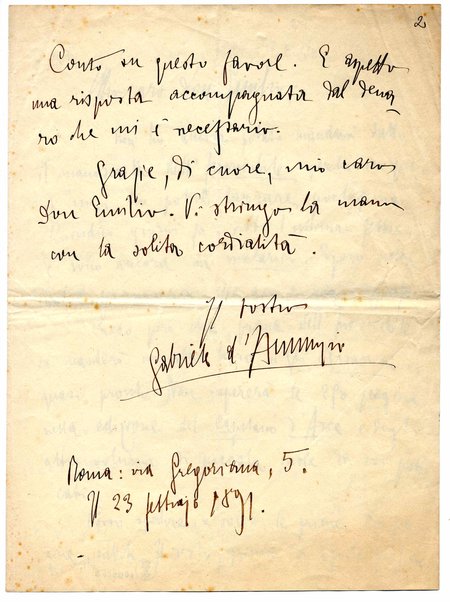 2
Conto su questo favore. E aspetto
una risposta accompagnata dal dena-
ro che mi è necessario.
Grazie, di cuore, mio caro
Don Emilio. Vi stringo la mano
con la solita cordialità.
Il vostro
Gabriele d'Annunzio
Roma: via Gregoriana, 5.
Il 23 febbrajo 1891.